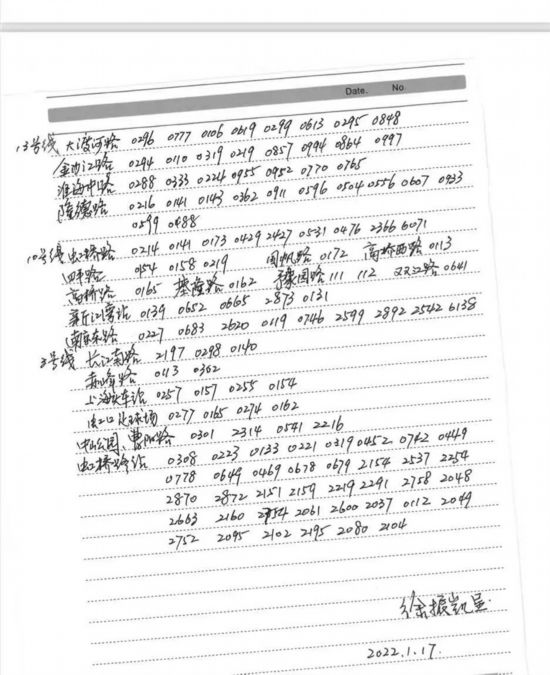 Date. No.
13号线 大渡河路 0296 0777 0106 0619 0299 0613 0295 0848
金沙江路 0294 0110 0319 0219 0857 0994 0864 0997
淮海中路 0288 0333 0224 0955 0952 0770 0765
隆德路 0216 0141 0143 0362 0911 0596 0504 0556 0607 0933
0599 0488
10号线 虹桥路 0214 0141 0173 0429 2427 0531 0476 2366 6071
四平路 054 0158 0219 国帆路 0172 高桥西路 0113
高桥路 0165 基隆路 0162 豫园路 111 112 双江路 0641
新江湾站 0139 0652 0665 2873 0131
南京东路 0227 0683 2620 0119 0746 2599 2892 2542 6138
3号线 长江南路 2197 0298 0140
赤峰路 0113 0362
上海火车站 0257 0157 0255 0154
虹口足球场 0277 0165 0274 0162
中山公园、曹杨路 0301 2314 0541 2216
虹桥路站 0308 0223 0133 0221 0319 0452 0742 0449
0778 0649 0469 0678 0679 2154 2537 2254
2870 2872 2151 2159 2219 2291 2758 2048
2663 2160 2061 2600 2037 0112 2049
2752 2095 2102 2195 2080 2104
徐振凯呈
2022.1.17.